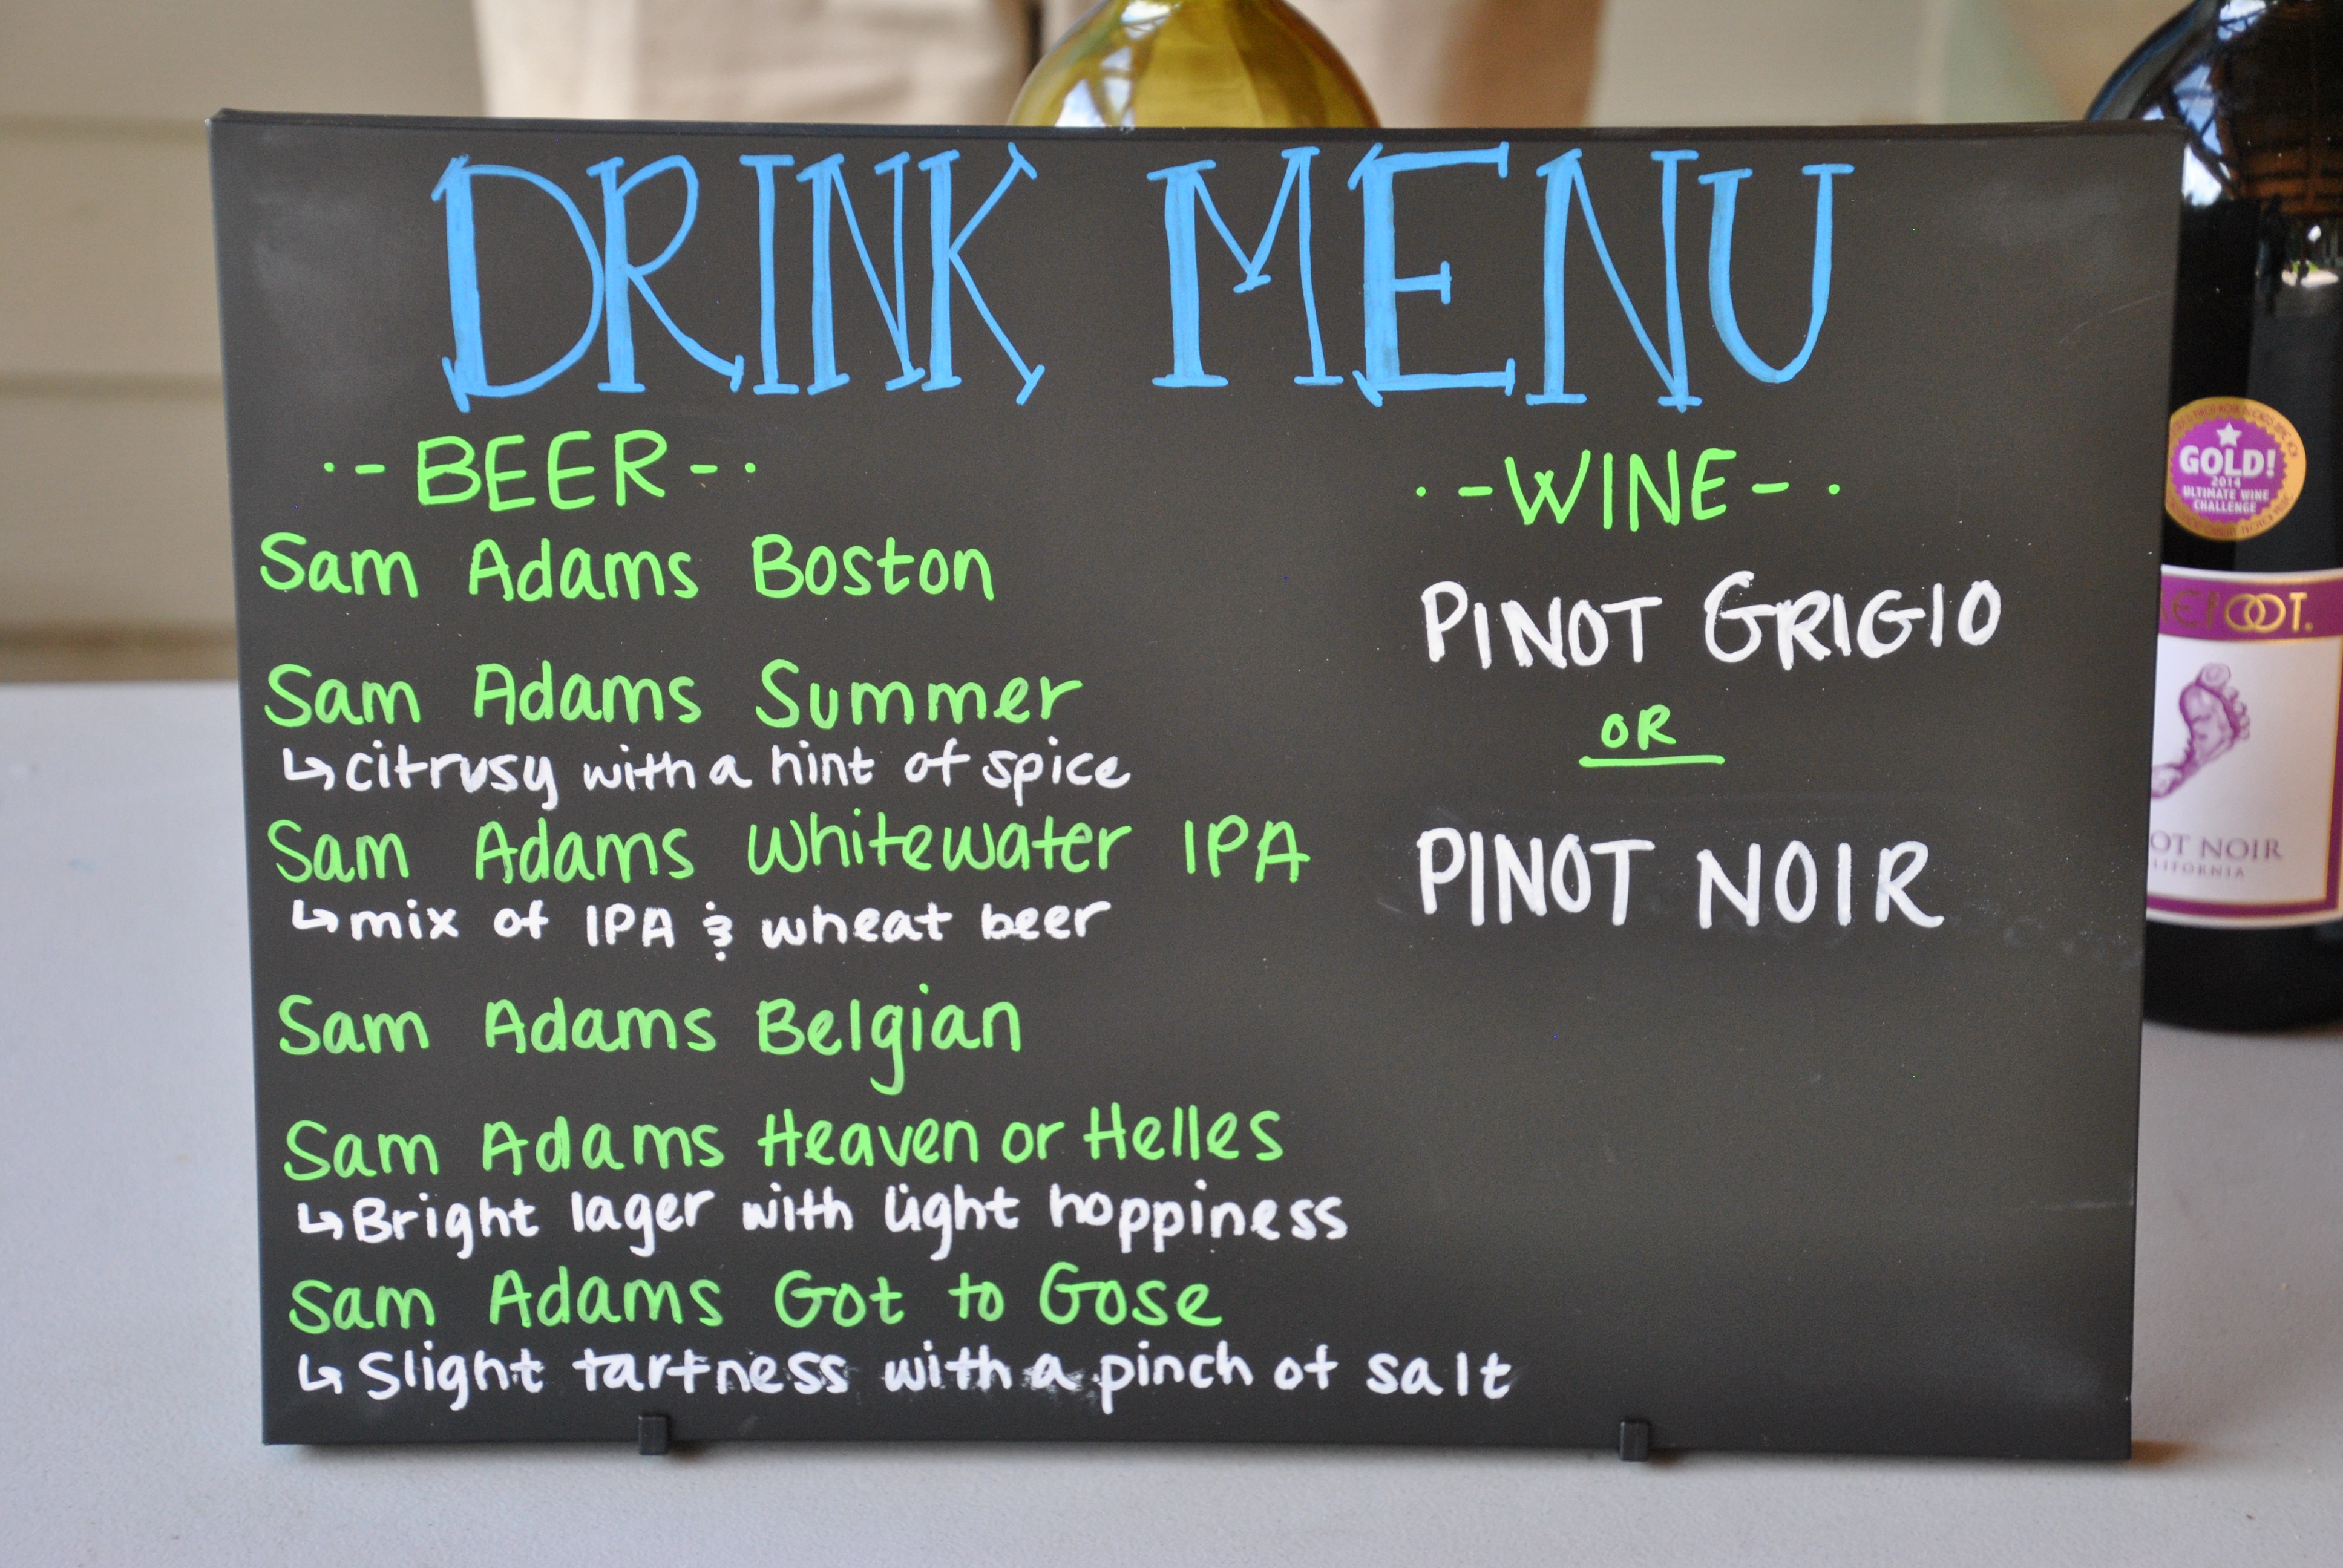 DRINK MENU
·-BEER-·
Sam Adams Boston
Sam Adams Summer
↳citrusy with a hint of spice
Sam Adams Whitewater IPA
↳mix of IPA & wheat beer
Sam Adams Belgian
Sam Adams Heaven or Helles
↳Bright lager with light hoppiness
Sam Adams Got to Gose
↳Slight tartness with a pinch of salt
·-WINE-·
PINOT GRIGIO
OR
PINOT NOIR
GOLD!
2014
ULTIMATE WINE
CHALLENGE
EFOOT.
OT NOIR
LIFORNIA